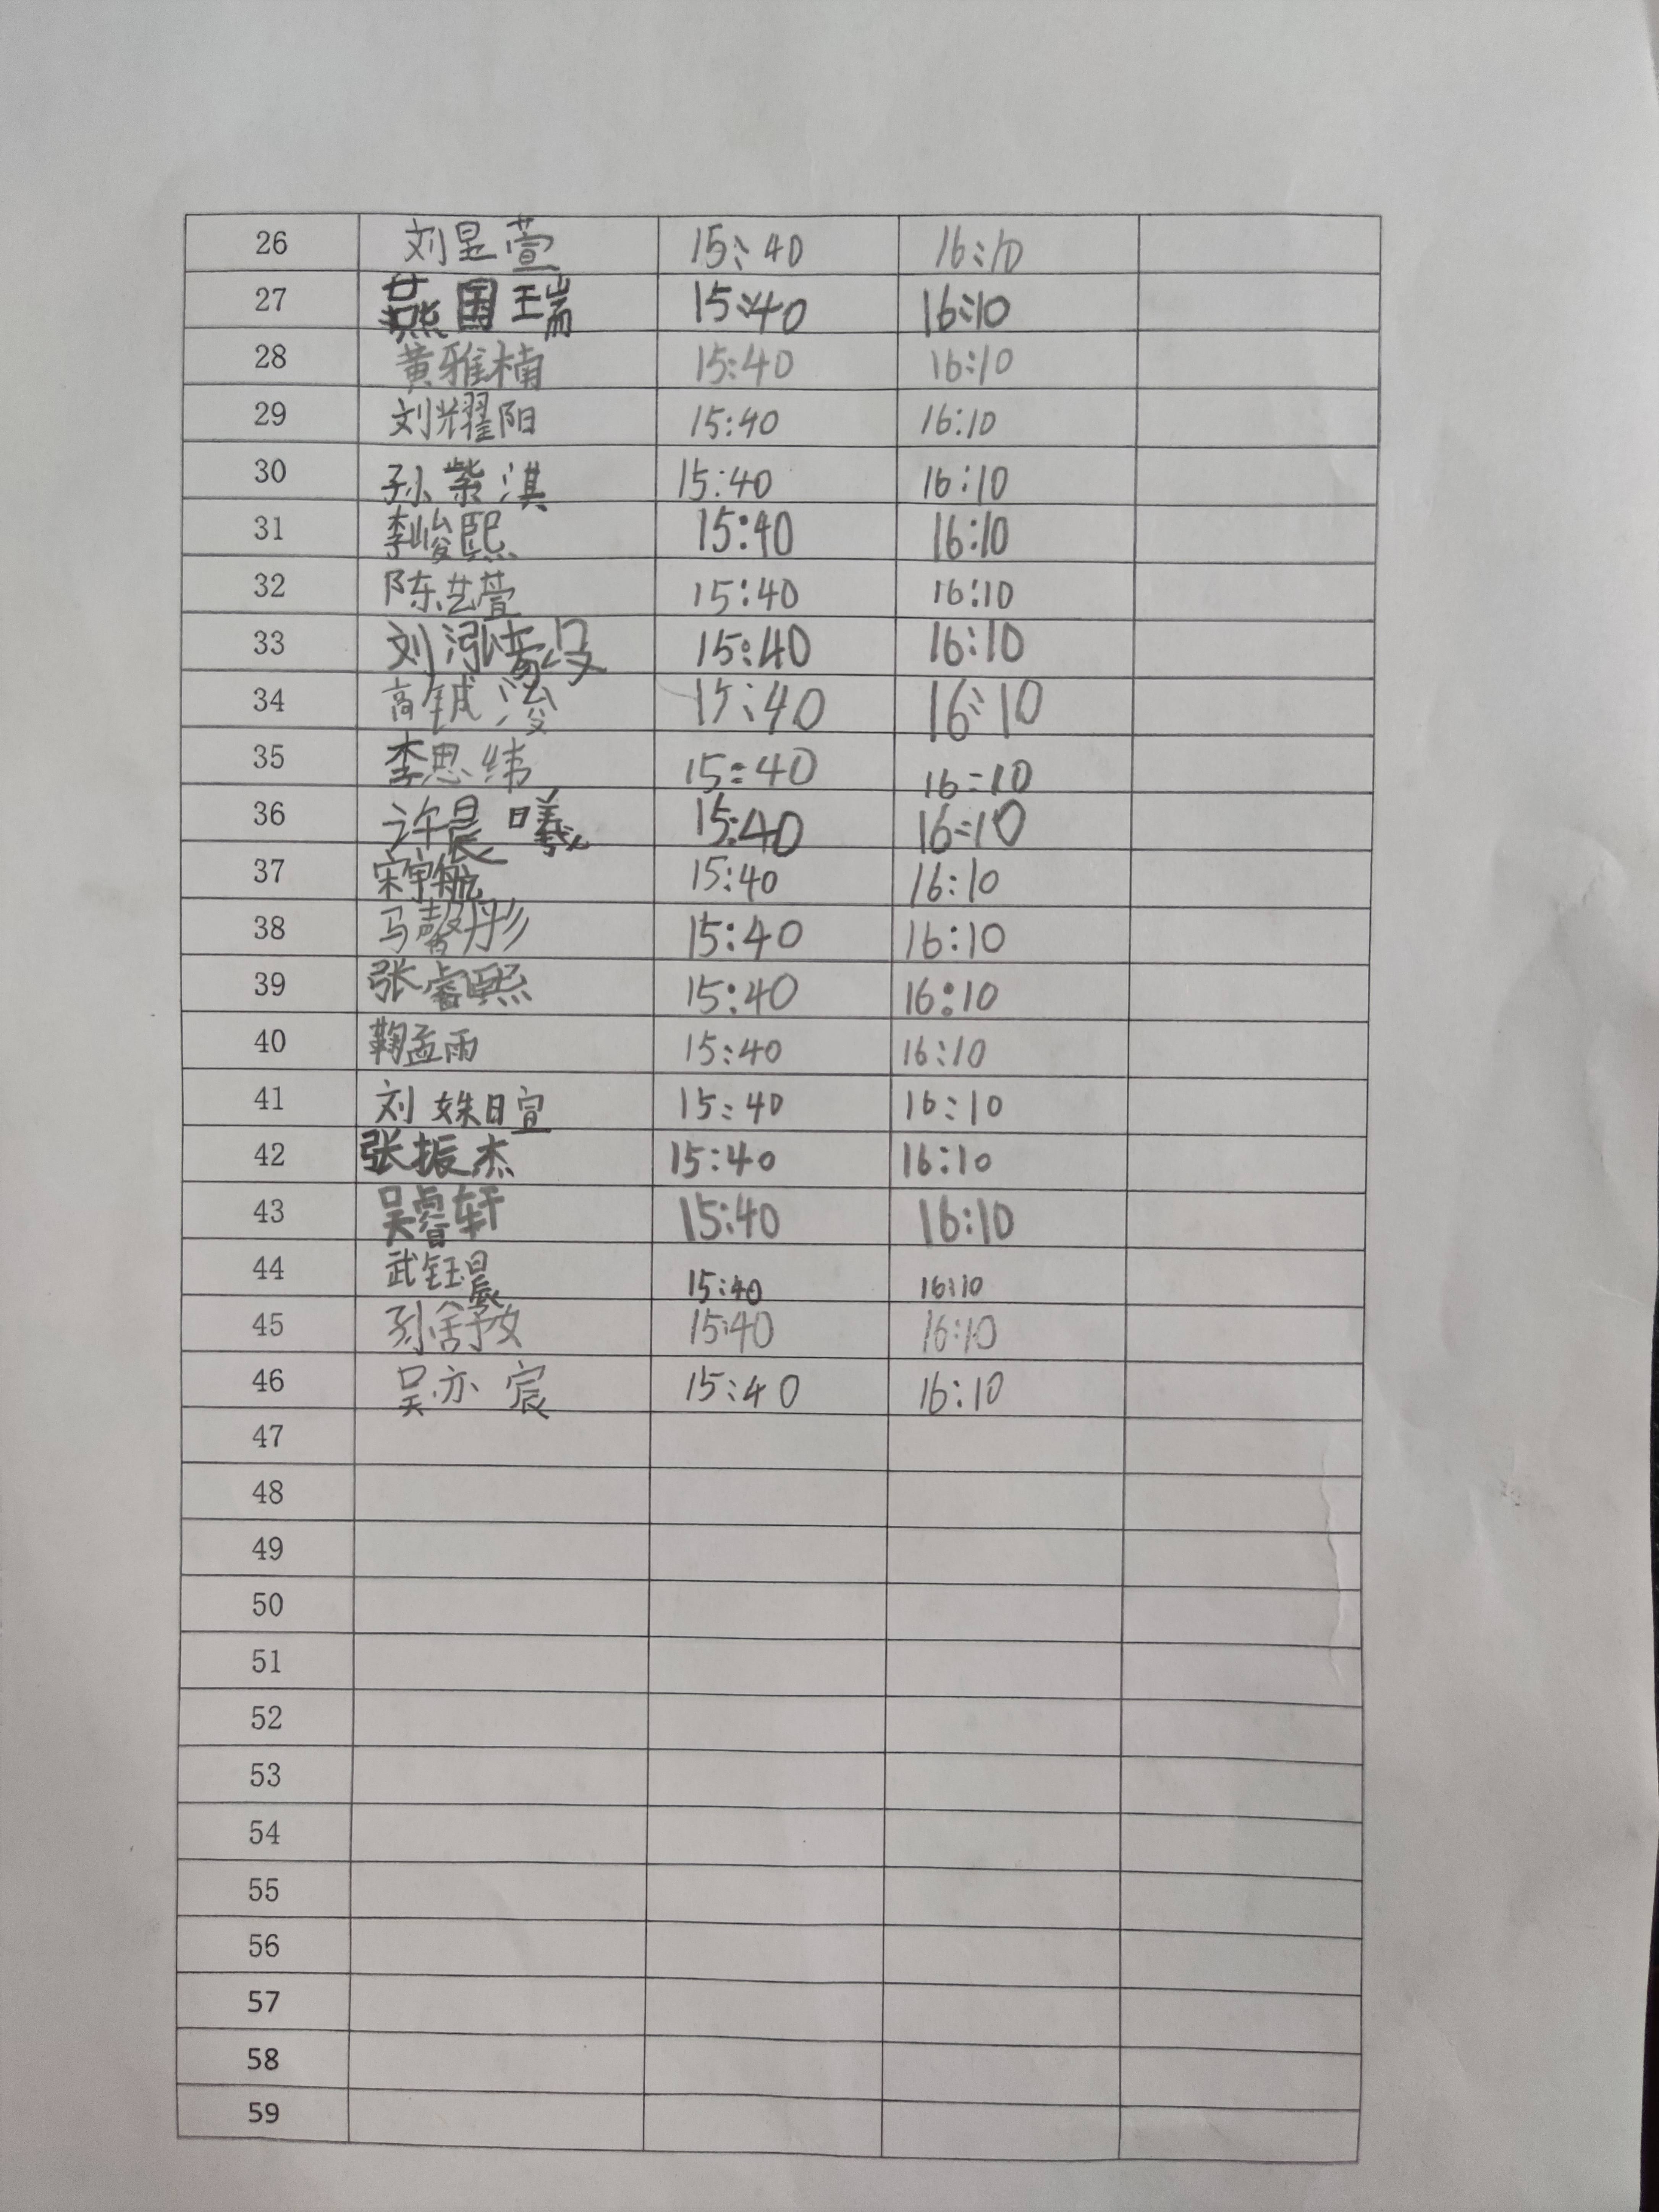 26 刘昱萱 15:40 16:10
27 燕国瑞 15:40 16:10
28 黄雅楠 15:40 16:10
29 刘耀阳 15:40 16:10
30 孙紫淇 15:40 16:10
31 李峻熙 15:40 16:10
32 陈艺萱 15:40 16:10
33 刘泓 15:40 16:10
34 高铖浚 15:40 16:10
35 李思纬 15:40 16:10
36 许晨曦 15:40 16:10
37 宋宇航 15:40 16:10
38 马馨彤 15:40 16:10
39 张睿熙 15:40 16:10
40 鞠孟雨 15:40 16:10
41 刘姝暄 15:40 16:10
42 张振杰 15:40 16:10
43 吴睿轩 15:40 16:10
44 武钰晨 15:40 16:10
45 孙舒文 15:40 16:10
46 吴亦宸 15:40 16:10
47
48
49
50
51
52
53
54
55
56
57
58
59